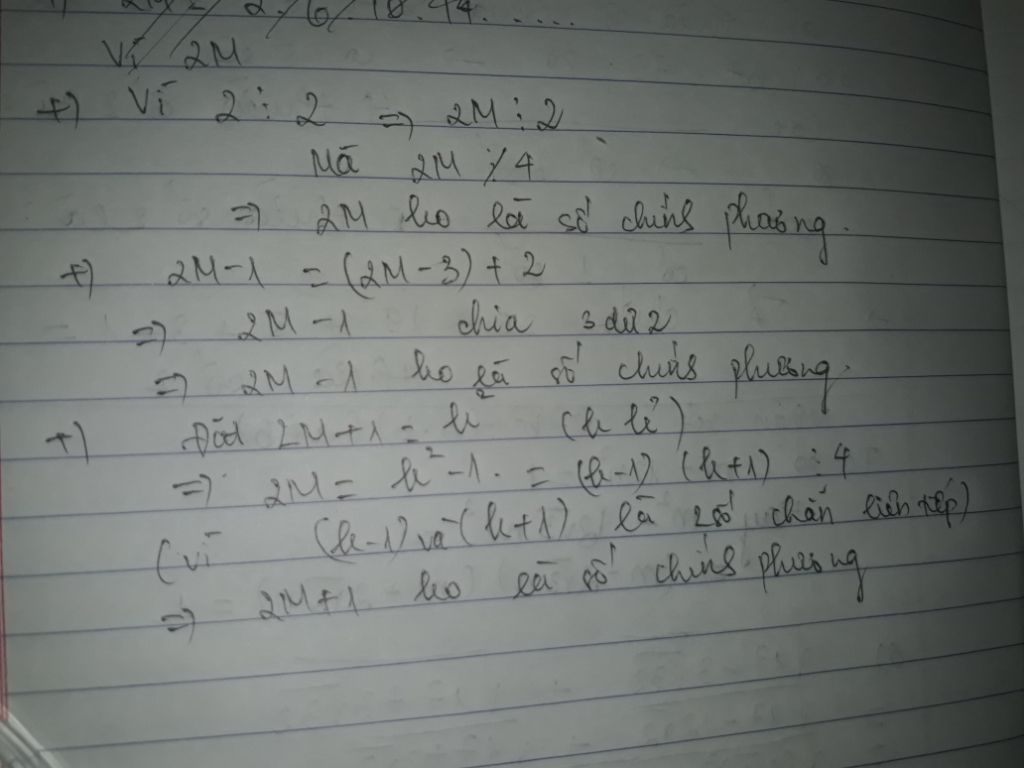 Vì 2M
+) Vì 2 ⋮ 2 => 2M ⋮ 2
Mà 2M ⋮̸ 4
=> 2M ko là số chính phương.
+) 2M-1 = (2M-3) + 2
=> 2M-1 chia 3 dư 2
=> 2M-1 ko là số chính phương.
+) Đặt 2M+1 = k² (k lẻ)
=> 2M = k²-1. = (k-1) (k+1) ⋮ 4
(vì (k-1) và (k+1) là 2 số chẵn liên tiếp)
=> 2M+1 ko là số chính phương